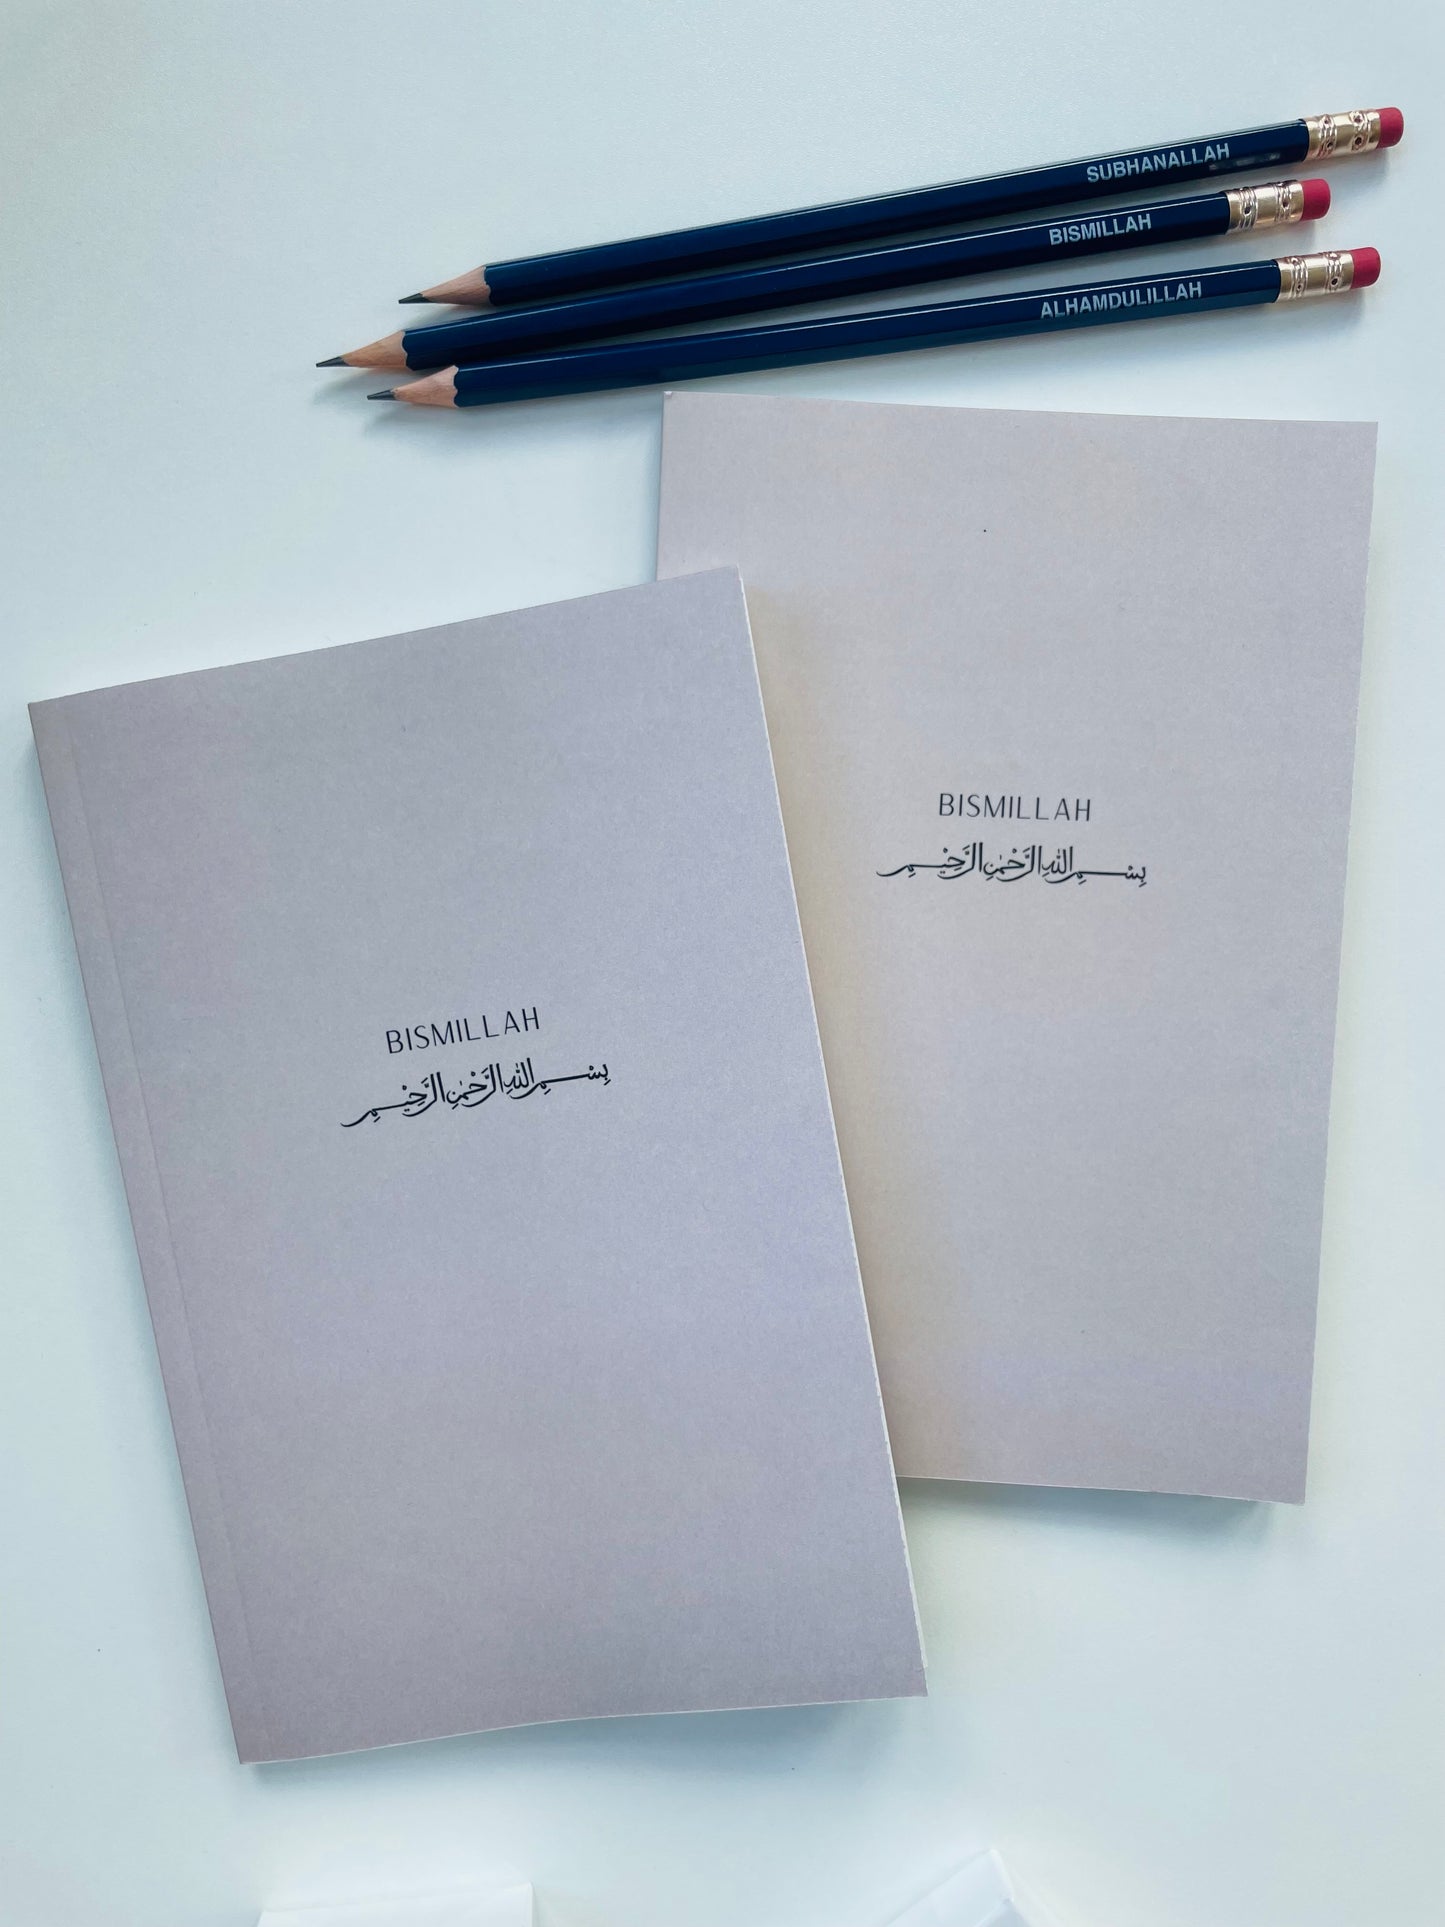 SUBHANALLAH
BISMILLAH
ALHAMDULILLAH
BISMILLAH
بِسْمِ اللهِ الرَّحْمٰنِ الرَّحِيْمِ
BISMILLAH
بِسْمِ اللهِ الرَّحْمٰنِ الرَّحِيْمِ